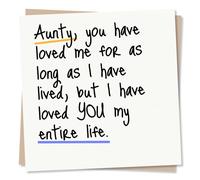 Aunty, you have
loved me for as
long as I have
lived, but I have
loved YOU my
entire life.